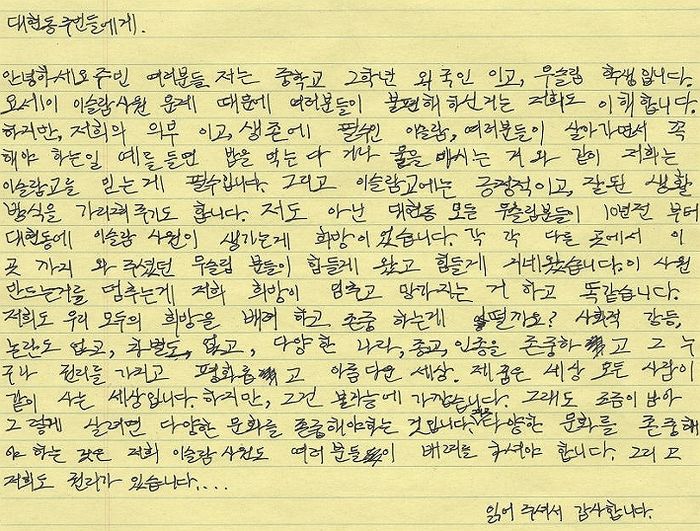 대현동주민들에게.
안녕하세요 주민 여러분들, 저는 중학교 2학년 외국인 이고, 무슬림 학생입니다.
요세이 이슬람사원 문제 때문에 여러분들이 불편해 하신거는 저희도 이해합니다.
하지만, 저희의 의무 이고, 생존에 필수인 이슬람, 여러분들이 살아가면서 꼭
해야 하는일 예를 들면 밥을 먹는다 거나 물을 마시는 거 와 같이 저희는
이슬람교를 믿는게 필수입니다. 그리고 이슬람교에는 긍정적이고, 잘된 생활
방식을 가리켜주기도 합니다. 저도 아닌 대현동 모든 무슬림분들이 10년전 부터
대현동에 이슬람 사원이 생기는게 희망이었습니다. 각 각 다른 곳에서 이
곳 까지 와 주셨던 무슬림 분들이 힘들게 왔고 힘들게 지내왔습니다. 이 사원
만드는거를 멈추는게 저희 희망이 멈추고 망가지는 거 하고 똑같습니다.
저희도 우리 모두의 희망을 배려 하고 존중 하는게 어떨까요? 사회적 갈등,
논란도 없고, 차별도, 없고, 다양한 나라, 종교, 인종을 존중하고 그 누
구나 권리를 가지고 평화롭고 아름다운 세상. 제 꿈은 세상 모든 사람이
같이 사는 세상입니다. 하지만, 그건 불가능에 가깝습니다. 그래도 조금이 남아
그렇게 살려면 다양한 문화를 존중해야하는 것입니다. 다양한 문화를 존중해
야 하는 것은 저희 이슬람 사원도 여러분들이 배려를 하셔야 합니다. 그리고
저희도 권리가 있습니다....
읽어 주셔서 감사합니다.